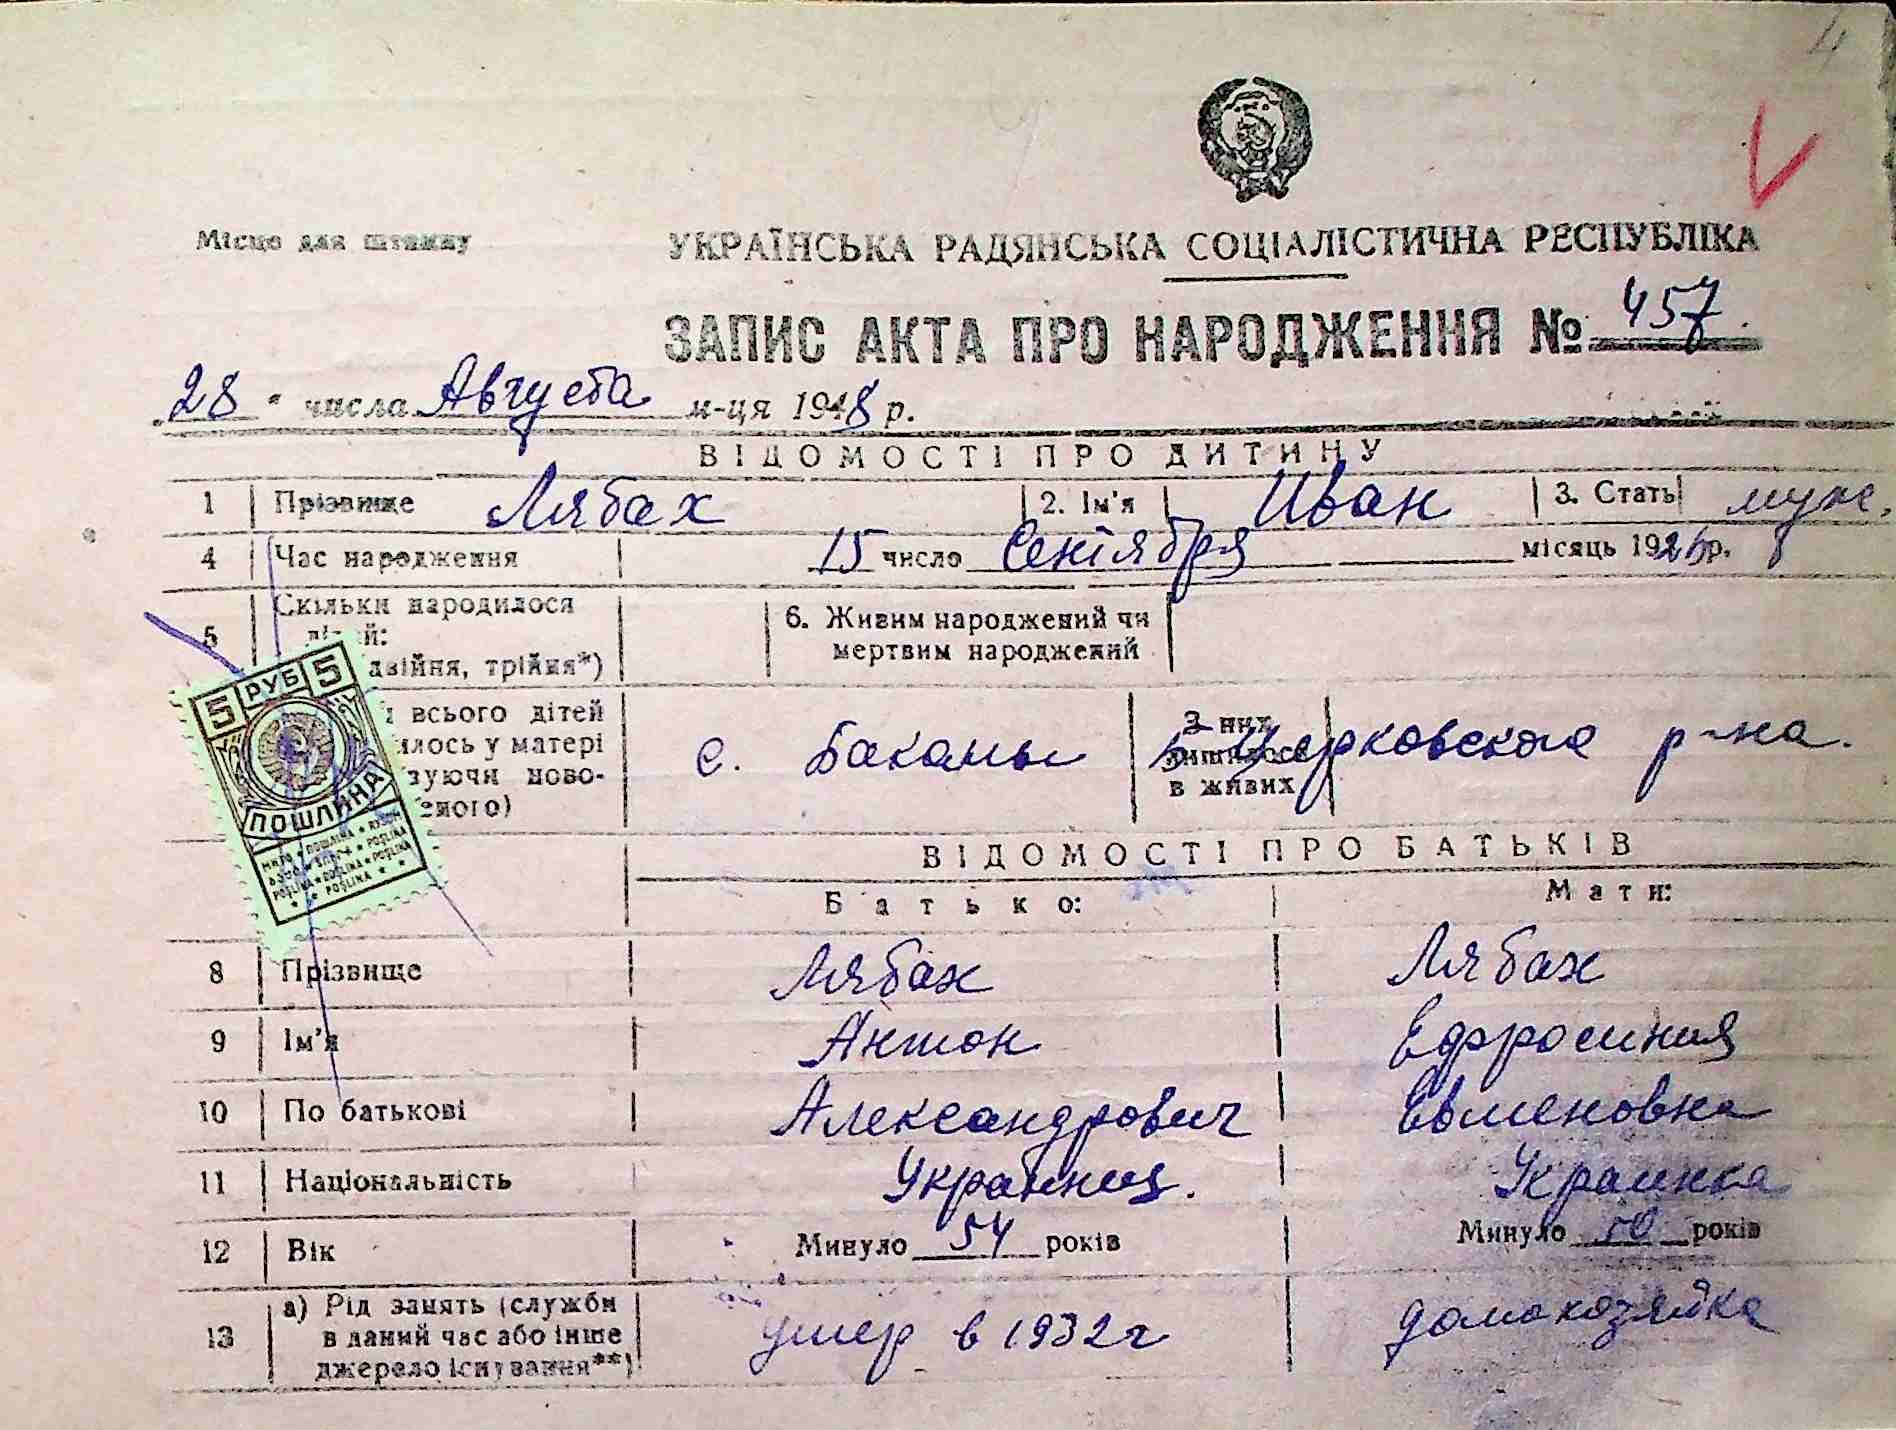 4
Місце для штампу
УКРАЇНСЬКА РАДЯНСЬКА СОЦІАЛІСТИЧНА РЕСПУБЛІКА
ЗАПИС АКТА ПРО НАРОДЖЕННЯ № 457.
„28" числа Августа м-ця 1948 р.
ВІДОМОСТІ ПРО ДИТИНУ
1 Прізвище Лябах 2. Ім'я Иван 3. Стать муж.
4 Час народження 15 число Сентября місяць 192 р.
5 Скільки народилося
двійня, трійня*)
6. Живим народжений чи
мертвим народжений
всього дітей
илось у матері
вуючи ново-
еного)
З них
лишилося
в живих
с. Бакаты Цюрковского р-на.
5 РУБ 5
ПОШЛИНА
ВІДОМОСТІ ПРО БАТЬКІВ
Батько: Мати:
8 Прізвище Лябах Лябах
9 Ім'я Антон Ефросиния
10 По батькові Александрович Евменовна
11 Національність Украинец. Украинка
12 Вік Минуло 54 років Минуло 50 років
13 а) Рід занять (служби
в даний час або інше
джерело існування**)
умер в 1932 г домохозяйка